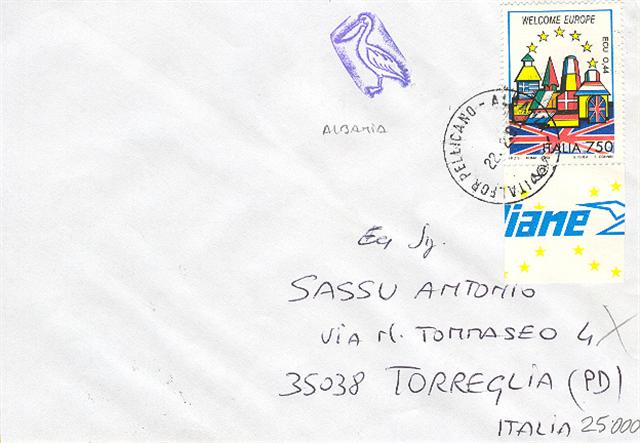 WELCOME EUROPE
ECU 0,44
ITALIA 750
ITALFOR PELLICANO - A
22.
ALBANIA
iane
Eg Sg.
SASSU ANTONIO
VIA N. TOMMASEO 4
35038 TORREGLIA (PD)
ITALIA 25000